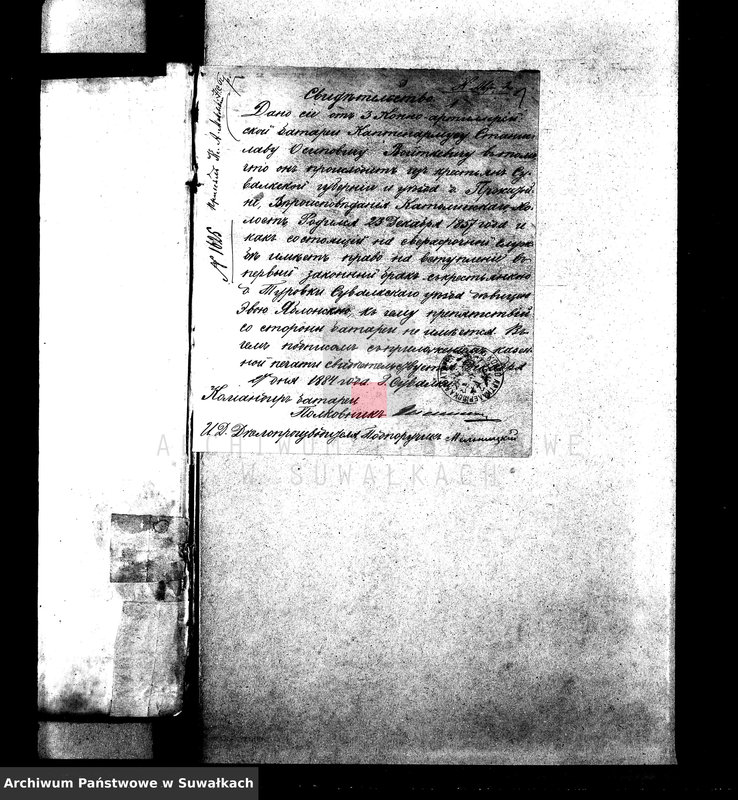 Свидѣтельство
Дано сіе отъ 3 Конно артиллерій
ской батареи Каптенармусу Станис
лаву Осипович Войткевичу въ томъ
что онъ происходитъ изъ крестьянъ Су
валкской губерніи и уѣзда д.
Вѣроисповѣданія Католическаго Хо
лостъ Родился 23 Декабря 1857 года и
какъ состоящій на сверхсрочной служ
бѣ имѣетъ право на вступленіе въ
первый законный бракъ съ крестьянкою
д. Туровки Сувалкскаго уѣзда дѣвицею
Эвою Яблонскою, къ чему препятствій
со стороны батареи не имѣется. Въ
чемъ подписомъ съ приложеніемъ казен
ной печати свидѣтельствуется
дня 1884 года г. Сувалки
Командиръ батареи
Полковникъ
И. Д. Дѣлопроизводителя Подпоручикъ
№ 1685
ARCHIWUM PAŃSTWOWE
W SUWAŁKACH
Archiwum Państwowe w Suwałkach